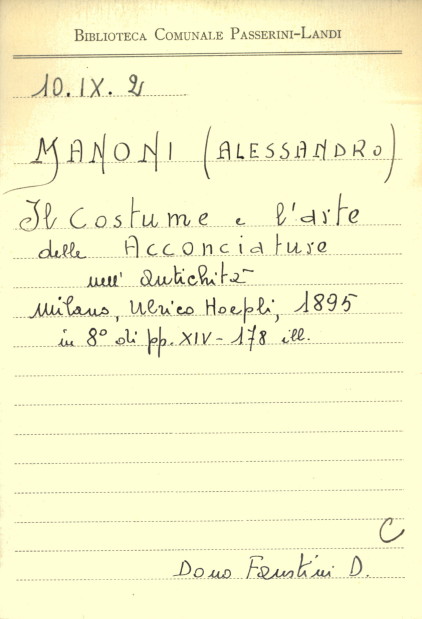 BIBLIOTECA COMUNALE PASSERINI-LANDI
10. IX. 2
MANONI (ALESSANDRO)
Il Costume e l'arte
delle Acconciature
nell' antichità
Milano, Ulrico Hoepli, 1895
in 8° di pp. XIV-178 ill.
C
Dono Faustini D.